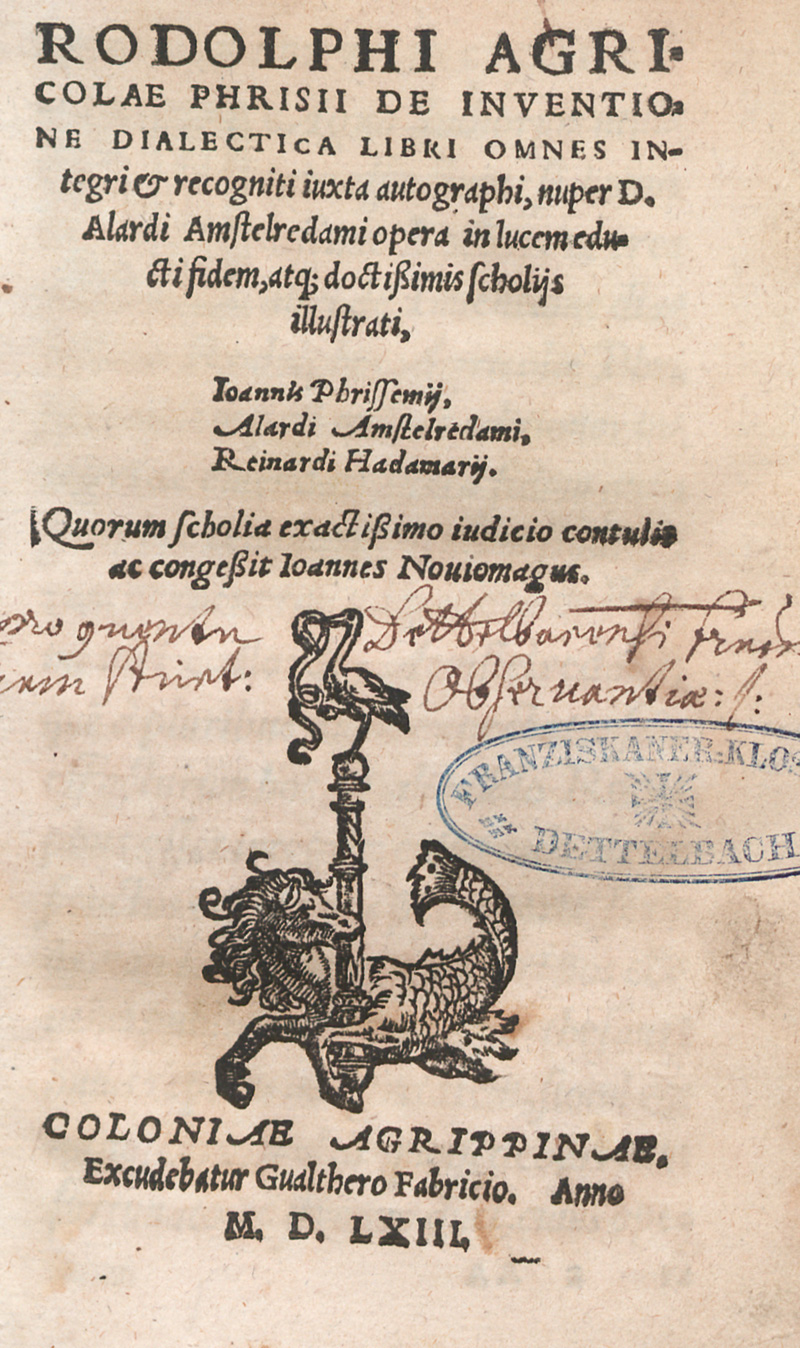 RODOLPHI AGRI-
COLAE PHRISII DE INVENTIO-
NE DIALECTICA LIBRI OMNES IN-
tegri & recogniti iuxta autographi, nuper D.
Alardi Amſtelredami opera in lucem edu-
cti fidem, atq; doctißimis ſcholijs
illuſtrati,
Ioannis Phriſſemij,
Alardi Amſtelredami,
Reinardi Hadamarij.
Quorum ſcholia exactißimo iudicio contulit
ac congeßit Ioannes Nouiomagus.
Dettelbacensi
Obſeruantiæ: ſ:
FRANZISKANER-KLOS
DETTELBACH
COLONIAE AGRIPPINAE.
Excudebatur Gualthero Fabricio. Anno
M. D. LXIII.